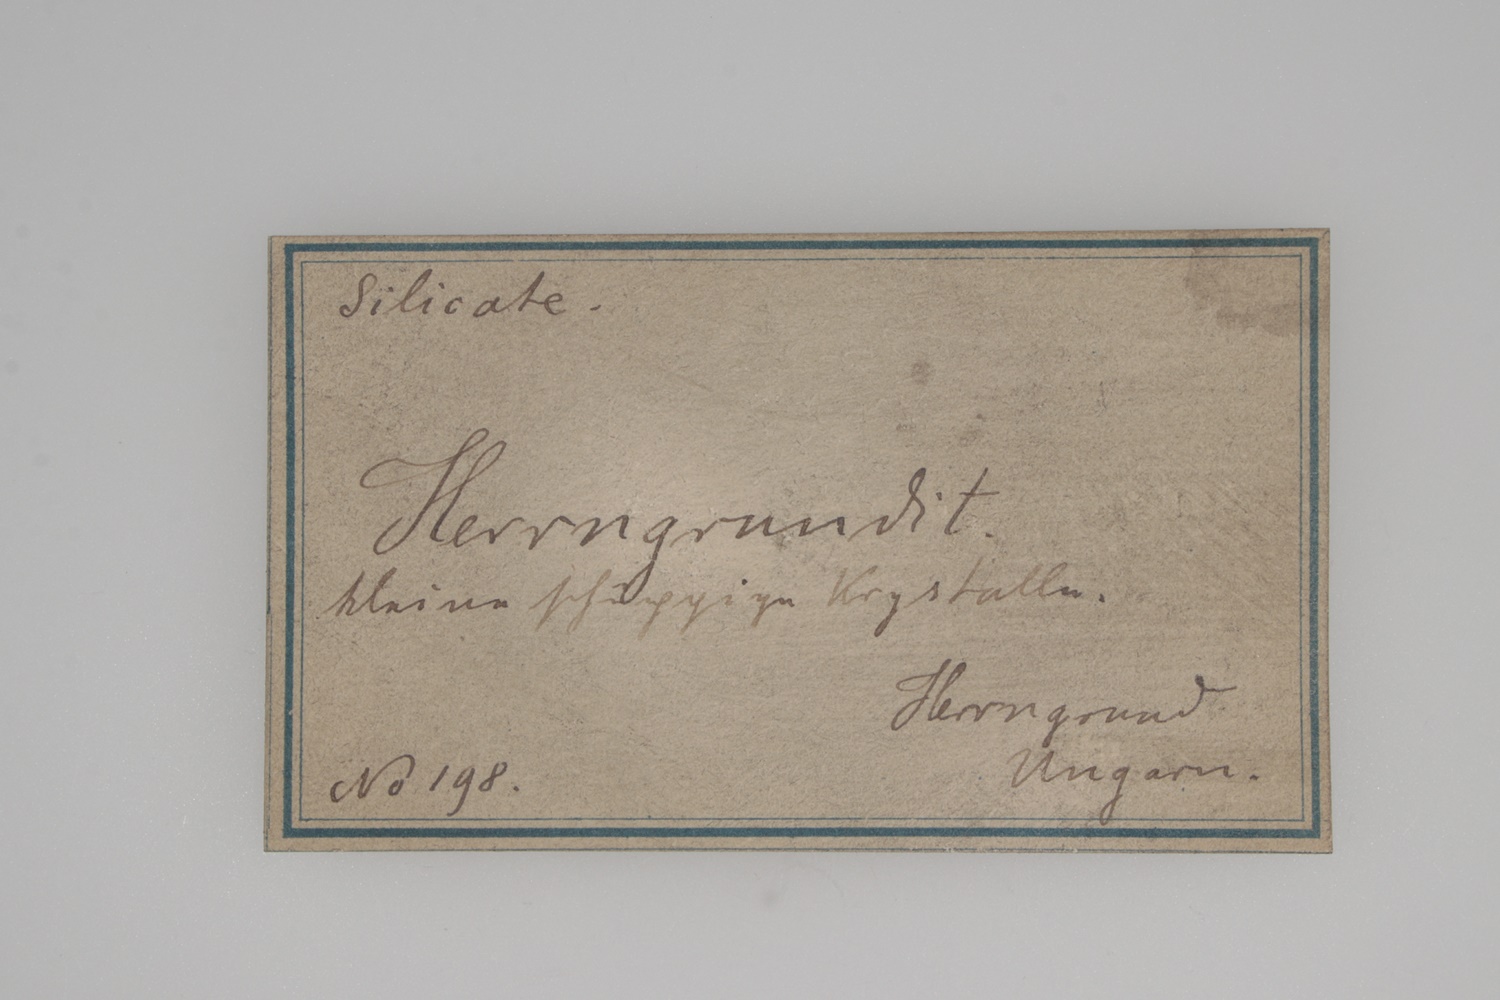 Silicate.
Herrngrundit.
kleine schuppige Krystalle.
Herrngrund
Ungarn.
No 198.